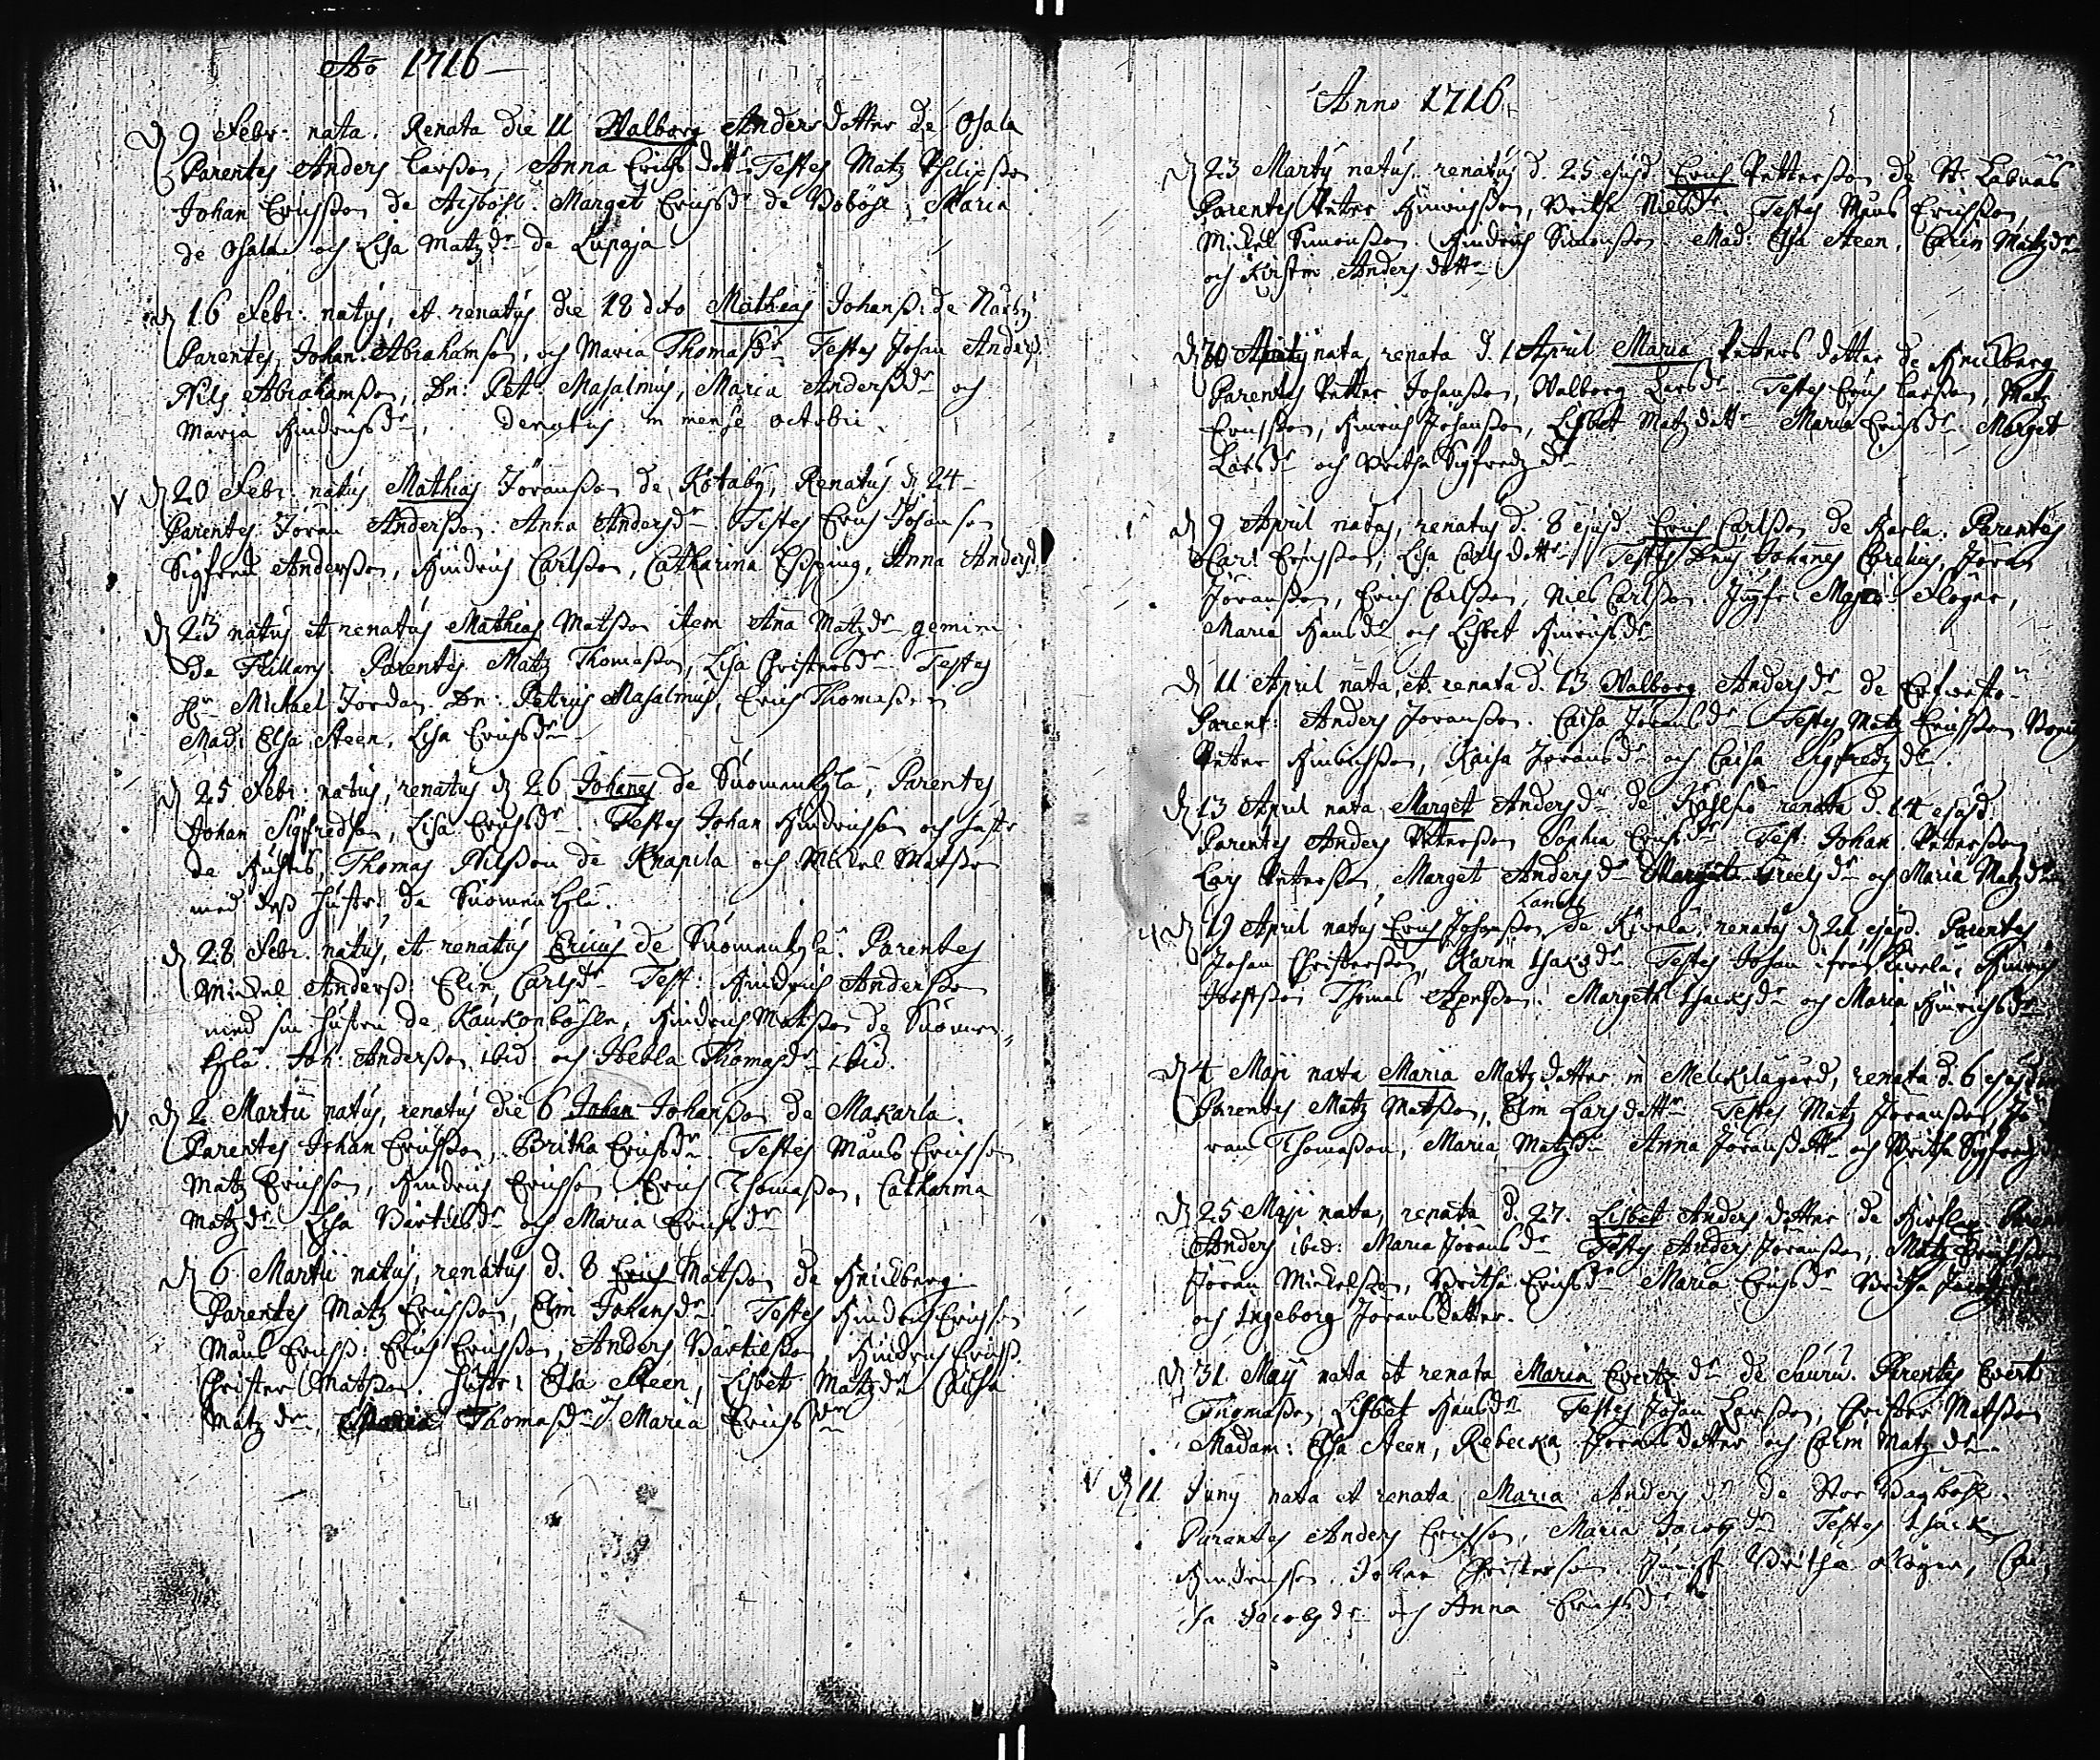 Ao 1716
D 9 Febr: nata. Renata die 11 Walborg Andersdotter de Osala
Parentes Anders Larsson, Anna Erichsdotr Testes Matz
Johan Erichsson de Marget Erichsdr de Bobösl, Maria
de Osala och Lisa Matzdr de
D 16 Febr: natus, et renatus die 18 dito Mathias Johanss: de Närby
Parentes Johan Abrahamson, och Maria Thomasdr Testes Johan Anders
Nils Abrahamsson, Dn: Pet: Masalinus, Maria Andersdr och
Maria Hindrichsdr, denatus in mense octobri
D 20 Febr: natus Mathias Jöransson de Kotaby, Renatus D 24
Parentes Jöran Andersson: Anna Andersdr Testes Erich Johanson
Sigfred Andersson, Hindrich Carlsson, Catharina Esping, Anna Andersd
D 23 natus et renatus Mathias Matsson item Ana Matzdr gemini
de Parentes Matz Thomasson, Lisa Christersdr Testes
Hr Michael Jordan Dn: Petrus Masalinus, Erich Thomasson
Mad: Elsa Steen, Lisa Erichsdr
D 25 Febr: natus, renatus D 26 Johanes de Suomenkylä, Parentes
Johan Sigfredson, Lisa Erichsdr. Testes Johan Hindrichson och hustr
de Thomas Nilsson de Knapila och Mickel Matsson
med dess hustr: de Suomenkylä.
D 28 Febr. natus, et renatus Ericus de Suomenkylä. Parentes
Mickel Anderss: Elin Carlsdr Test: Hindrich Andersson
med sin hustru de Kaukonböhle, Hindrich Matsson de Suomen
kylä. Joh: Andersson ibid: och Hebla Thomasdr ibid.
D 2 Martii natus, renatus die 6 Johan Johansson de Makarla.
Parentes Johan Erichsson, Britha Erichsdr. Testes Måns Erichson
Matz Erichson, Hindrich Erichson Erich Thomasson, Catharina
Matzdr Lisa Bärtilsdr och Maria Erichsdr
D 6 Martii natus, renatus d. 8 Erich Matsson de Knickberg
Parentes Matz Erichsson, Elin Johansdr Testes Hindrich Erichson
Måns Erichss: Erich Erichsson, Anders Bärtilsson Hindrich Erichss.
Christer Matsson. hustr: Elsa Steen, Lisbet Matzdr Caisa
Matzdr, Thomasdr och Maria Erichsdr
Anno 1716
D 23 Martij natus, renatus d. 25 ejusd Erich Pettersson de St. Labnäs
Parentes Petter Hinrichsson, Britha Nielsdr. Testes Måns Erichsson,
Mickel Simonsson. Hindrich Simonsson. Mad: Elsa Steen, Carin Matzdr
och Kirstin Andersdotr
D 30 nata, renata d. 1 April Maria Pettersdotter de Knickberg
Parentes Petter Johansson, Walborg Larsdr Testes Erich Larsson, Matz
Erichsson, Hinrich Johansson, Lisbet Matzdotr Maria Erichsdr Marget
Larsdr och Britha Sigfredzdr
D 7 April natus, renatus d. 8 ejusd Erich Carlsson de Karla. Parentes
Carl Erichsson, Lisa Carlsdotr Testes Johanes Jöran
Jöransson, Erich Carlsson, Niels Carlsson. Jungfr. Maria Flöger,
Maria Hansdr och Lisbet Hinrichsdr
D 11 April nata, et renata d. 13 Walborg Andersdr de
Parent: Anders Jöransson. Caisa Jöransdr Testes Matz Erichsson
Petter Hinrichsson, Kaisa Jöransdr och Caisa Sigfredzdr.
D 13 April nata Margett Andersdr de renata d. 14 ejusd.
Parentes Anders Pettersson Sophia Erichsdr Test. Johan Pettersson
Lars Pettersson, Marget Andersdr Margeta Greelsdr och Maria Matzdr
D 19 April natus Erich Johansson de Kivelä renatus D 21 ejusd. Parentes
Johan Christersson, Karin Isaksdr Testes Johan ifrån Kivelä, Hinrich
Thomas Margeta Isacksdr och Maria Hinrichsdr
D 4 Maji nata Maria Matzdotter in Melckilägård, renata d. 6 ejusdem
Parentes Matz Matsson, Elin Larsdotr Testes Matz Jöransson, Jö
ran Thomasson, Maria Matzdr Anna Jöransdotr och Britha Sigfredzd
D 25 Maji nata, renata d. 27. Lisbet Andersdotter de Parent
Anders ibid: Maria Jöransdr Testes Anders Jöransson, Matz Erichsson
Jöran Mickelsson, Britha Erichsdr Maria Erichsdr Britha
och Ingeborg Jöransdotter.
D 31 Maij nata et renata Maria Evertzdr de Parentes Evert
Thomasson, Lisbet Hansdr Testes Johan Larsson, Christer Matsson
Madam: Elsa Steen, Rebecka Jöransdotter och Carin Matzdr
D 11 Junij nata et renata, Maria Andersdr de Stor Bagböhl.
Parentes Anders Erichsson, Maria Jacobsdr. Testes Isack
Hindrichsson. Johan Christersson Jungfr Britha Flöger, Cai
sa Jacobsdr och Anna Erichsdr